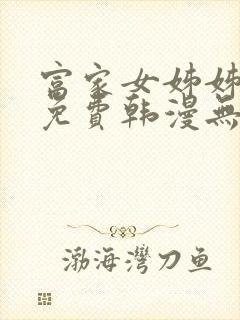 富家女姊姊
免費韩漫無
渤海灣刀鱼